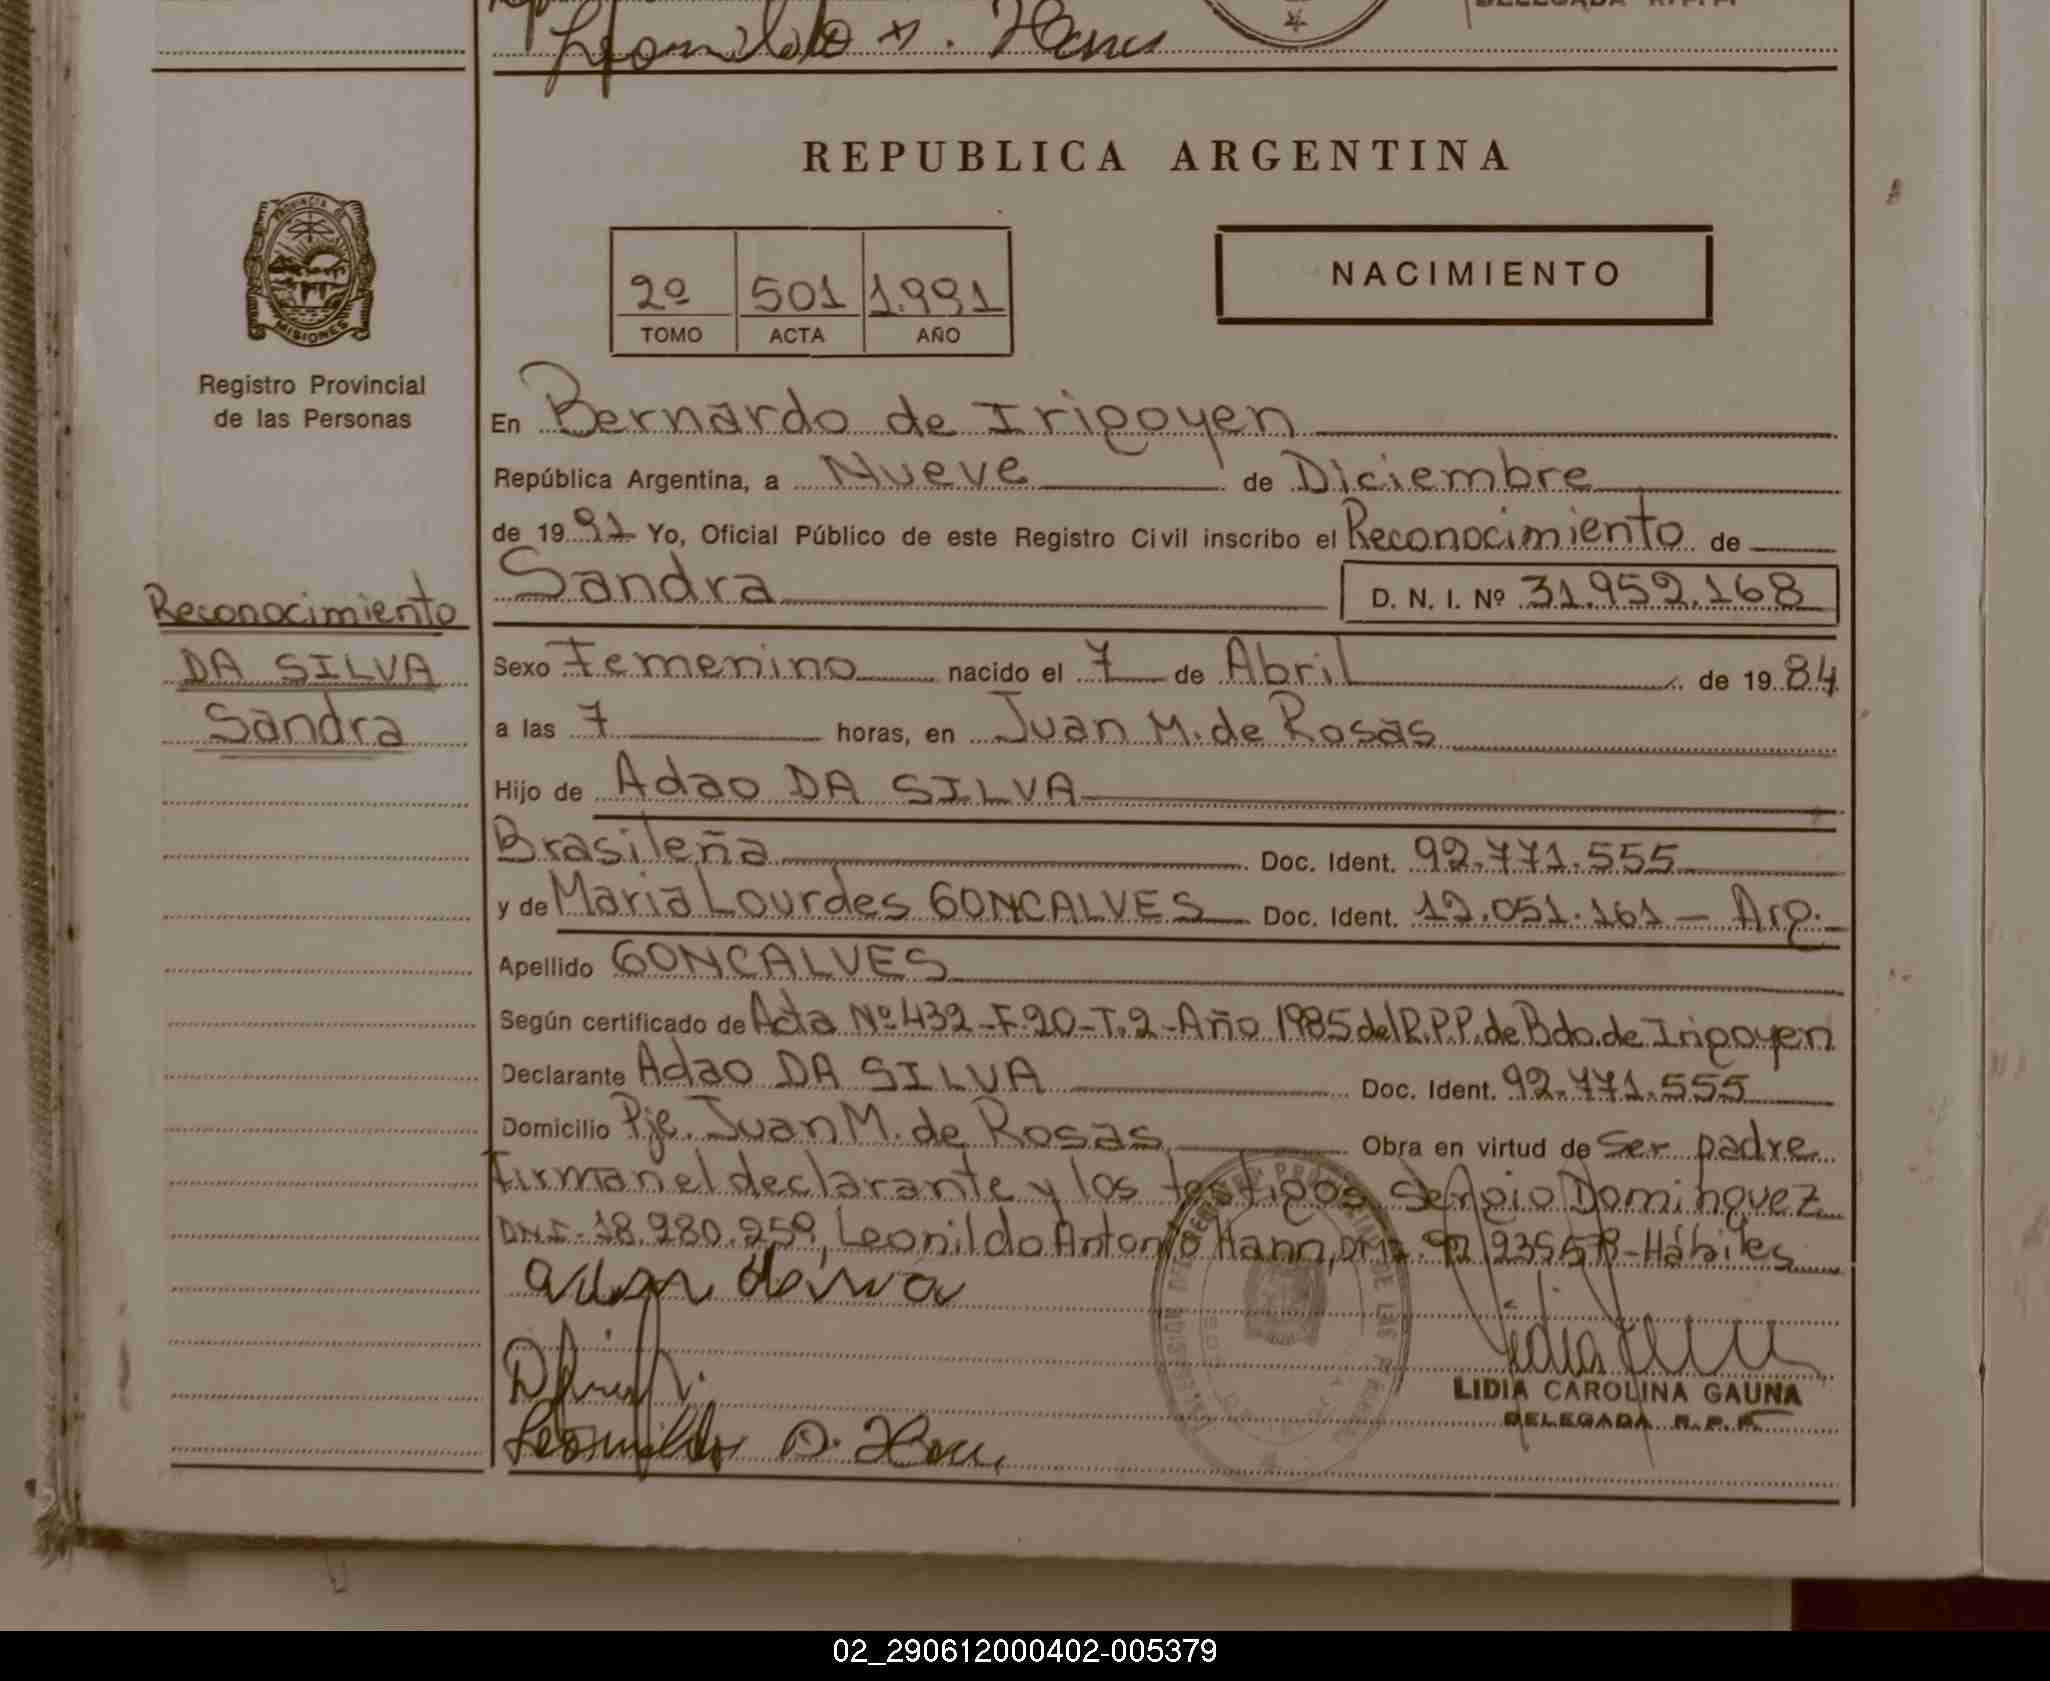 Leonildo A. Hann
DELEGADA R.P.P.
REPUBLICA ARGENTINA
PROVINCIA DE
MISIONES
Registro Provincial
de las Personas
2º 501 1.991
TOMO ACTA AÑO
NACIMIENTO
En Bernardo de Irigoyen
República Argentina, a Nueve de Diciembre
de 1991 Yo, Oficial Público de este Registro Civil inscribo el Reconocimiento de
Sandra D. N. I. Nº 31.952.168
Reconocimiento
DA SILVA
Sandra
Sexo Femenino nacido el 7 de Abril de 1984
a las 7 horas, en Juan M. de Rosas
Hijo de Adao DA SILVA
Brasileña Doc. Ident. 92.771.555
y de Maria Lourdes GONCALVES Doc. Ident. 12.051.161 - Arg.
Apellido GONCALVES
Según certificado de Acta Nº 432-F.20-T.2-Año 1985 del R.P.P. de Bdo. de Irigoyen
Declarante Adao DA SILVA Doc. Ident. 92.771.555
Domicilio Pje. Juan M. de Rosas Obra en virtud de Ser padre
Firman el declarante y los testigos Sergio Dominguez
DNI-18.980.259, Leonildo Antonio Hann, Hábiles
Leonildo A. Hann
LIDIA CAROLINA GAUNA
DELEGADA R.P.P.
02_290612000402-005379